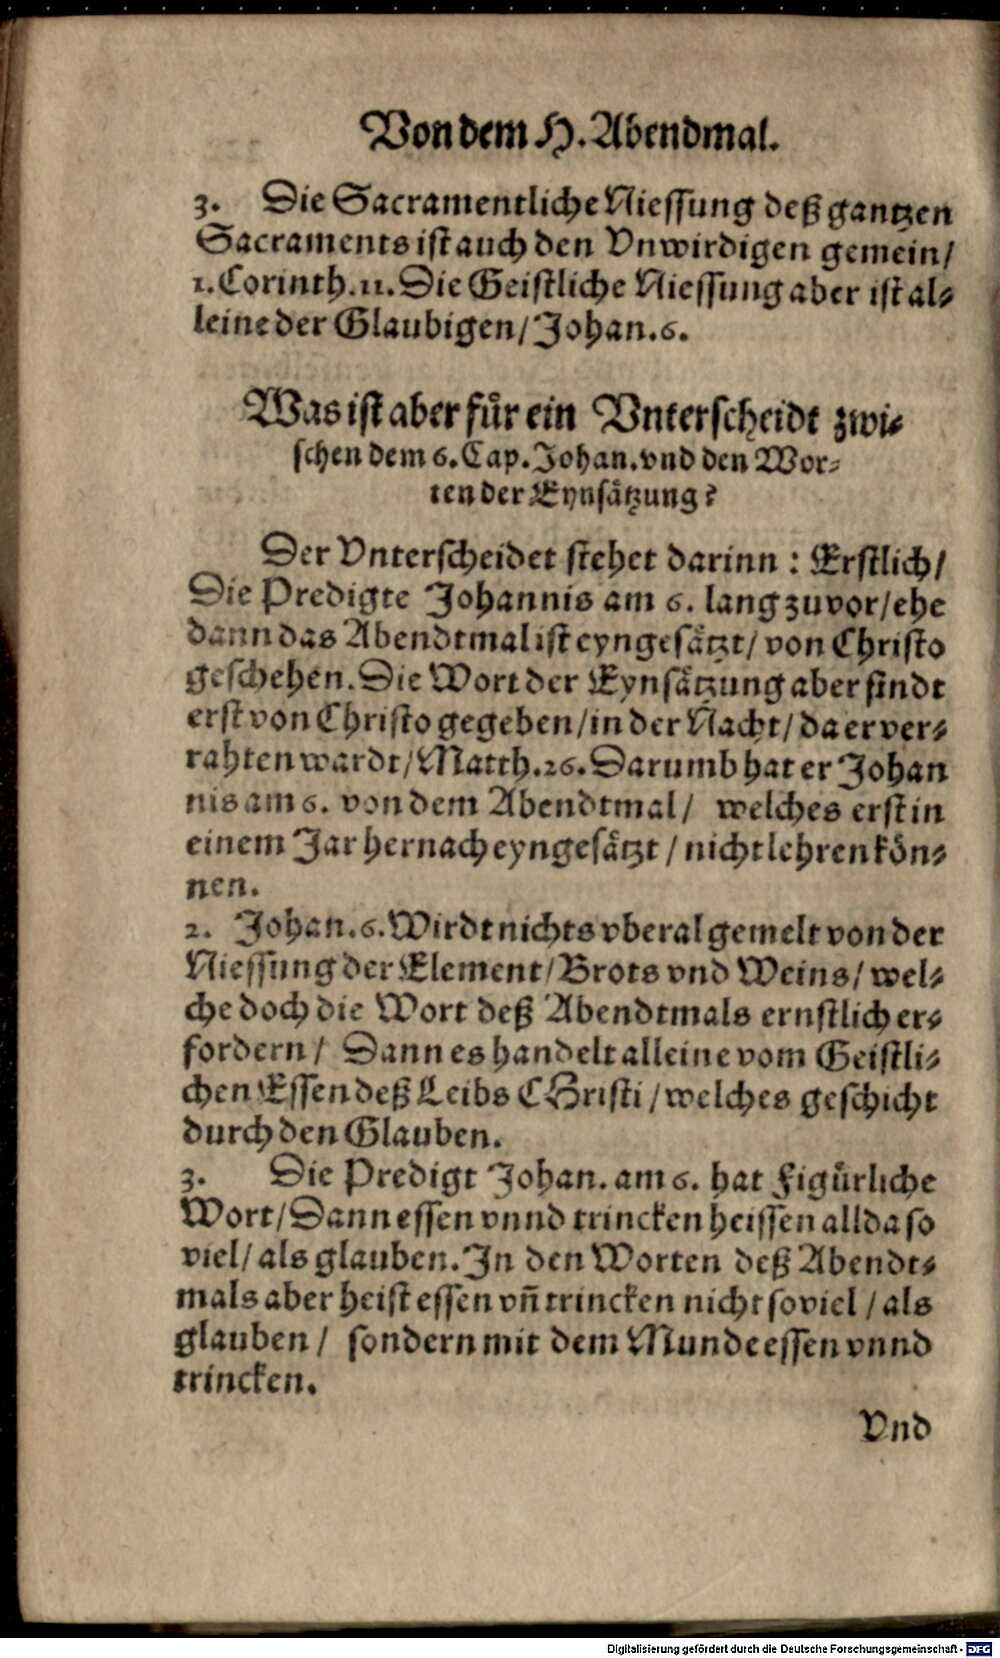 Von dem H. Abendmal.
3. Die Sacramentliche Niessung deß gantzen
Sacraments ist auch den Vnwirdigen gemein/
1. Corinth. 11. Die Geistliche Niessung aber ist al-
leine der Glaubigen/ Johan. 6.
Was ist aber für ein Vnterscheidt zwi-
schen dem 6. Cap. Johan. vnd den Wor-
ten der Eynsätzung?
Der Vnterscheidet stehet darinn: Erstlich/
Die Predigte Johannis am 6. lang zuvor/ ehe
dann das Abendtmal ist eyngesätzt/ von Christo
geschehen. Die Wort der Eynsätzung aber sindt
erst von Christo gegeben/ in der Nacht/ da er ver-
rahten wardt/ Matth. 26. Darumb hat er Johan
nis am 6. von dem Abendtmal/ welches erst in
einem Jar hernach eyngesätzt/ nicht lehren kön-
nen.
2. Johan. 6. Wirdt nichts vberal gemelt von der
Niessung der Element/ Brots vnd Weins/ wel-
che doch die Wort deß Abendtmals ernstlich er-
fordern/ Dann es handelt alleine vom Geistli-
chen Essen deß Leibs CHristi/ welches geschicht
durch den Glauben.
3. Die Predigt Johan. am 6. hat Figürliche
Wort/ Dann essen vnnd trincken heissen allda so
viel/ als glauben. In den Worten deß Abendt-
mals aber heist essen vñ trincken nicht so viel/ als
glauben/ sondern mit dem Munde essen vnnd
trincken.
Vnd
Digitalisierung gefördert durch die Deutsche Forschungsgemeinschaft - DFG